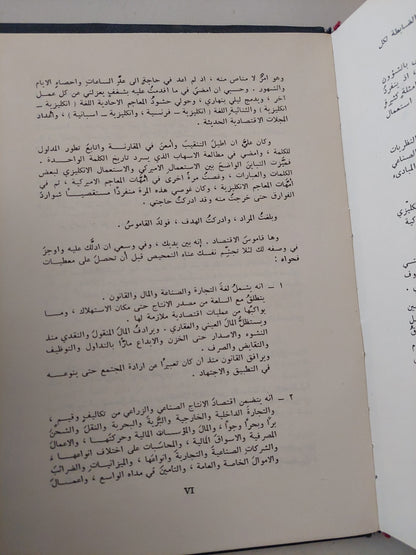 وهو امرٌ لا مناص منه ، اذ لم اعد في حاجةٍ الى عدِّ الساعات واحصاء الايام
والشهور . وحسبي ان امضي في ما اقدمتُ عليه بشغفٍ يعزلني عن كل عملٍ
آخر ، ويدمج ليلي بنهاري ، وحولي حشودُ المعاجم الاحادية اللغة ( انكليزية –
انكليزية ) والثنائية اللغة ( انكليزية – فرنسية ، وانكليزية – اسبانية ) ، واعداد
المجلات الاقتصادية الحديثة .
وكان عليَّ ان اطيل التنقيب وأُمعن في المقارنة واتابع تطور المدلول
للكلمة ، وامضي في مطالعة الاسهاب الذي يسرد تاريخ الكلمة الواحدة .
فميّزت التباين الواضح بين الاستعمال الاميركي والاستعمال الانكليزي لبعض
الكلمات والعبارات ، وغصت مرةً اخرى في أمهّات المعاجم الاميركية ، ثم في
أمهّات المعاجم الانكليزية ، وكان غوصي هذه المرة منفردًا مستقصيًا شوارد
الفوارق حتى خرجتُ منه وقد ادركت حاجتي .
وبلغتُ المراد ، وادركتُ الهدف ، فولدَ القاموسُ .
وها قاموس الاقتصاد . إنه بين يديك ، وفي وسعي ان ادلّك عليه واوجز
في وصفه لك لئلا تجشّم نفسك عناء التمحيص قبل أن تحصل على معطيات
فحواه :
١ – انه يشملُ لغةَ التجارة والصناعة والمال والقانون .
ينطلقُ مع السلعة من مصدر الانتاج حتى مكان الاستهلاك ، وما
يواكبُها من عمليات اقتصادية ملازمة لها .
ويستظلُّ المالَ العيني والعقاري . ويرادفُ المالَ المنقول والنقدي منذ
النشوء والاصدار حتى الخزن والايداع مارًّا بالتداول والتوظيف
والتقابض والصرف .
ويرافق القانون منذ أن كان تعبيرًا عن ارادة المجتمع حتى بنوعه
في التطبيق والاجتهاد .
٢ – انه يتضمن اقتصادَ الانتاج الصناعي والزراعي من تكاليف وقيم ،
والتجارة الداخلية والخارجية والبرّية والبحرية والنقل والشحن
برًّا وبحرًا وجوًّا ، والمال والمؤسسات المالية وحركتَها ، والاعمال
المصرفية والاسواق المالية ، والمحاسبات على اختلاف انواعها ،
والشركات الصناعية والتجارية وانواعها ، والميزانيات والضرائب
والاموال الخاصة والعامة ، والتأمين في مداه الواسع ، واعمال
VI